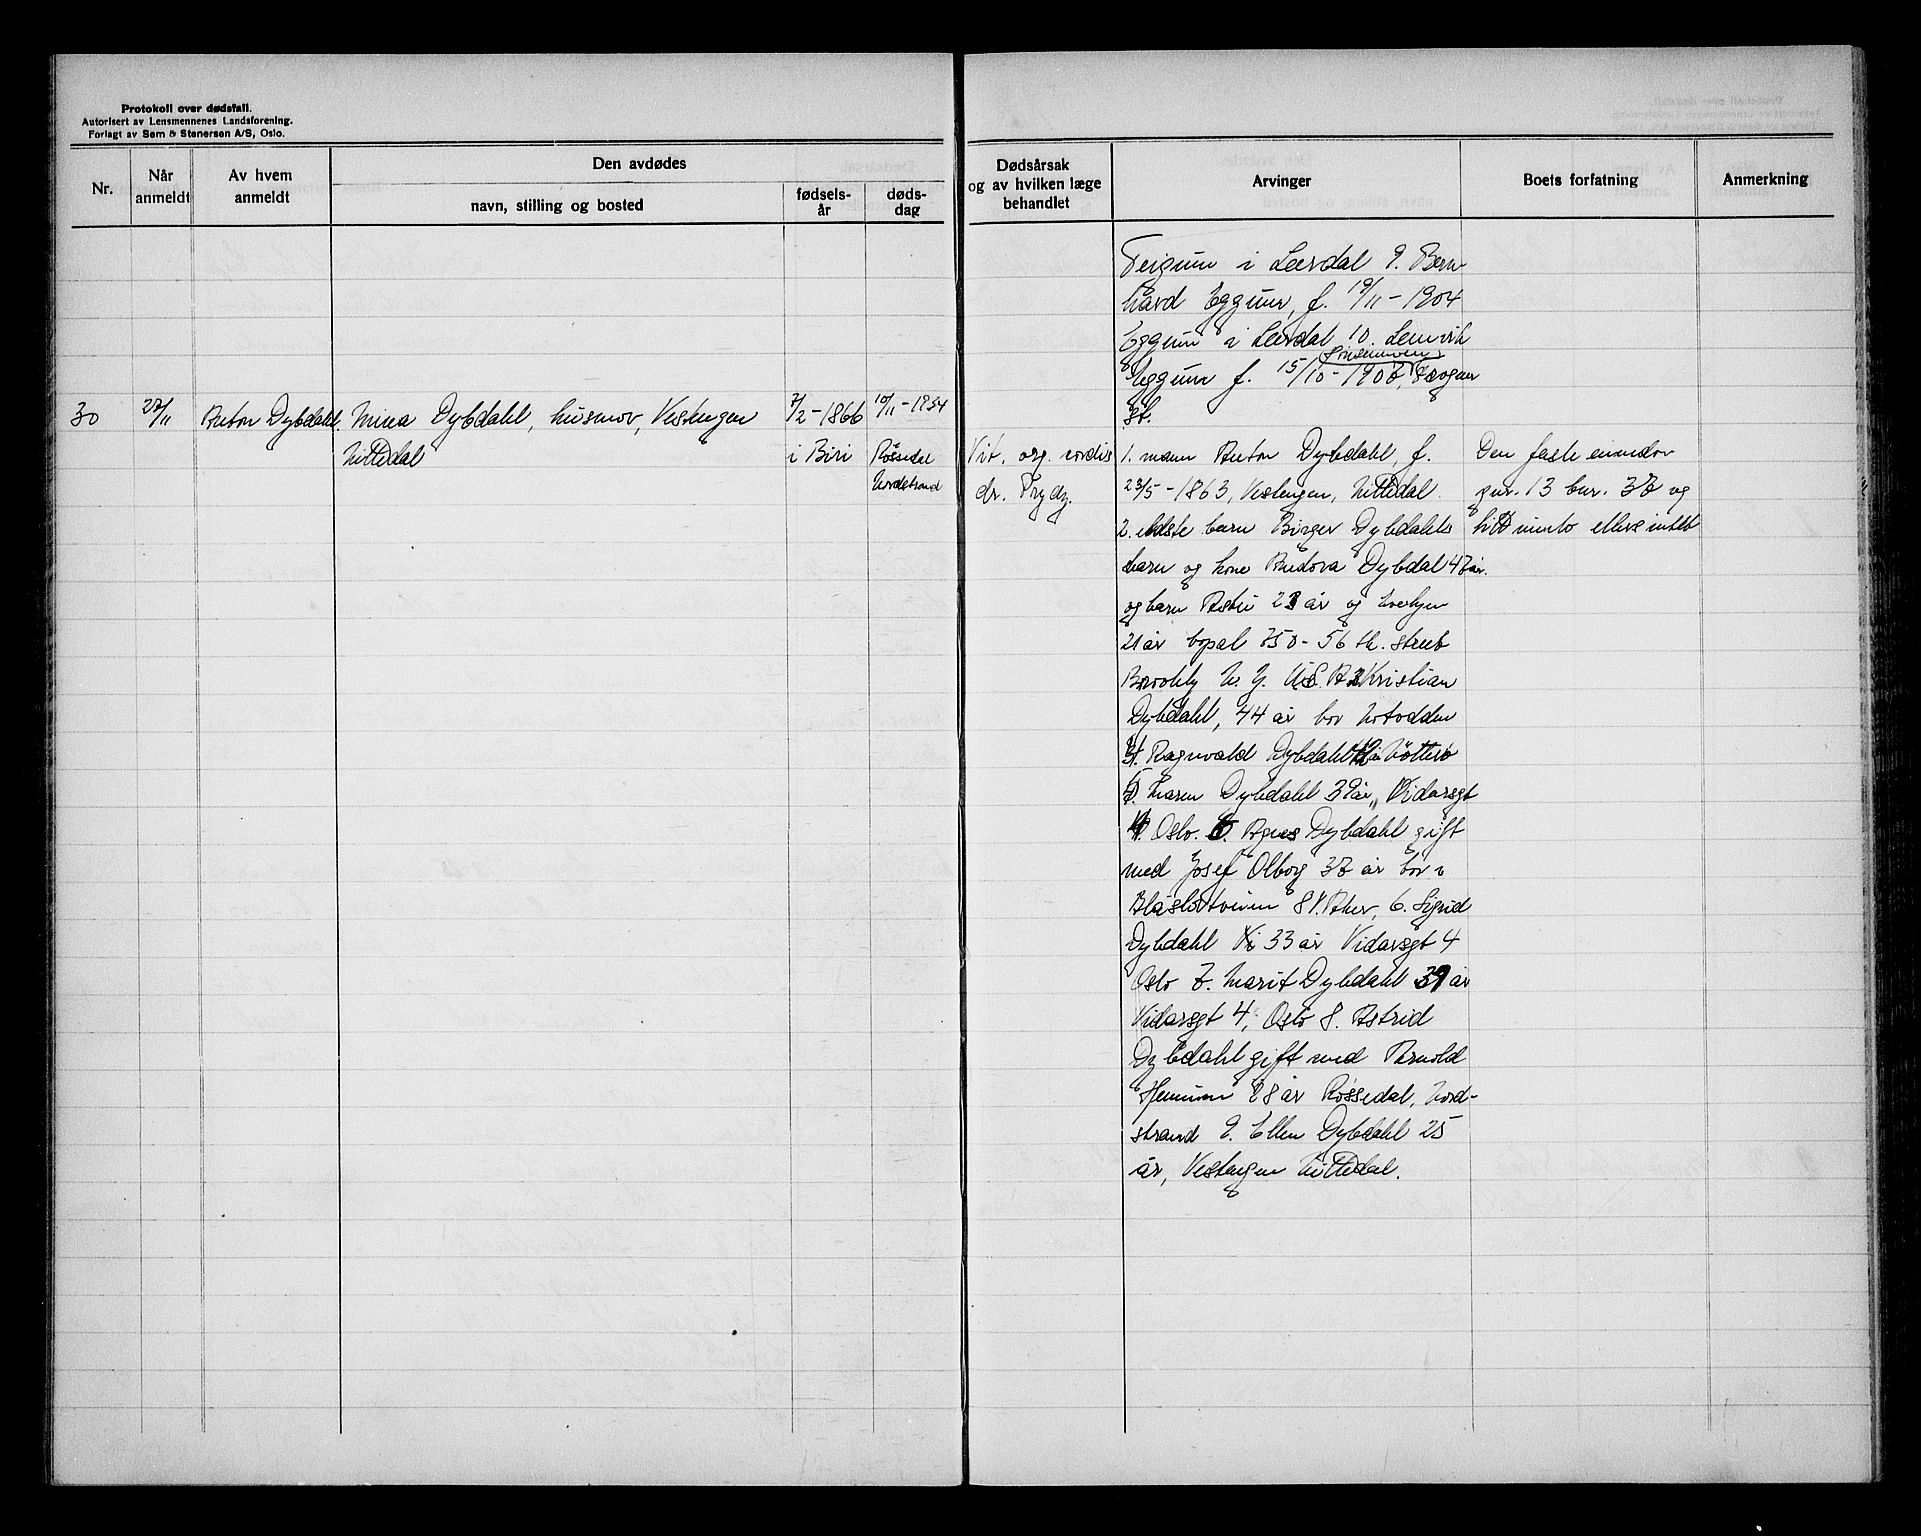 Protokoll over dødsfall.
Autorisert av Lensmennenes Landsforening.
Forlagt av Sem & Stenersen A/S, Oslo.
Nr.
Når anmeldt
Av hvem anmeldt
Den avdødes
navn, stilling og bosted
fødsels-år
døds-dag
Dødsårsak og av hvilken læge behandlet
Arvinger
Boets forfatning
Anmerkning
i Lærdal 9. Bern
hard Eggum, f. 19/11-1904
Eggum i Lærdal 10. Lemvik
Eggum f. 15/10-1907
st.
30
27/11
Anton Dybdahl.
Mina Dybdahl, husmor, Vestengen
Nittedal
7/2-1866
i Biri
10/11-1934
Røssedal
Nordstrand
Vit. org. cordis
dr. Frydz.
1. mann Anton Dybdahl, f.
23/5-1863, Vestengen, Nittedal.
2. eldste barn Birger Dybdahls
barn og kone Dybdal 47 år.
og barn 23 år og Evelyn
21 år bopel 750-56 th. street
N. Y. U.S.A 3 Kristian
Dybdahl, 44 år bor Notodden
4. Ragnvald Dybdahl
5. Maren Dybdahl 39 år, Vidarsgt
4. Oslo. 6. Agnes Dybdahl gift
med Josef Olborg 37 år bor i
8 V. Aker, 6. Sigrid
Dybdahl 33 år Vidarsgt 4
Oslo 7. Marit Dybdahl 39 år
Vidarsgt 4, Oslo 8. Astrid
Dybdahl gift med Arnold
28 år Røssedal, Nord-
strand 9. Ellen Dybdahl 25
år, Vestengen Nittedal.
Den faste eiendom
gnr. 13 bnr. 37 og
litt innbo ellers intet